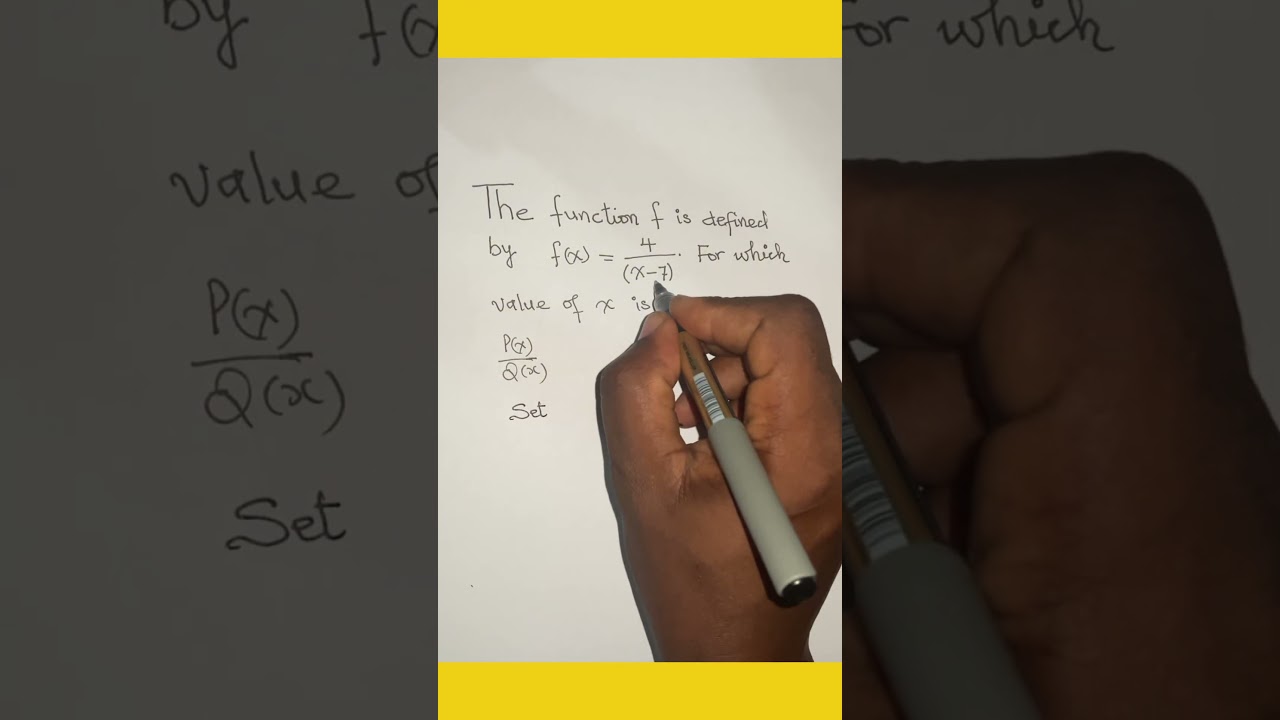 The function f is defined
by f(x) = 4/(x-7). For which
value of x is
P(x)/Q(x)
Set